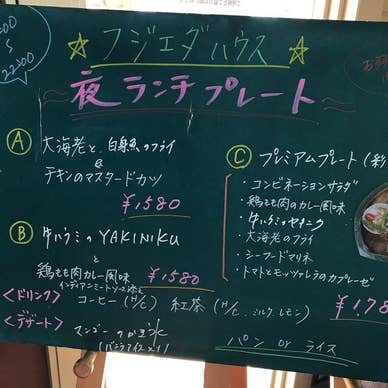 22:00
☆ フジエダハウス ☆
夜ランチプレート
Ⓐ 大海老と、白身魚のフライ
&
チキンのマスタードカツ
¥1,580
Ⓑ 牛ハラミのYAKINIKU
と
鶏もも肉のカレー風味
インディアンミートソース添え
¥1,580
Ⓒ プレミアムプレート(彩
・コンビネーションサラダ
・鶏もも肉のカレー風味
・牛ハラミのヤキニク
・大海老のフライ
・シーフードマリネ
・トマトとモッツァレラのカプレーゼ
¥1,78
<ドリンク> コーヒー(H/C) 紅茶(H/C、ミルク、レモン)
<デザート> マンゴーのかき氷
(バニラアイス入り)
パン or ライス